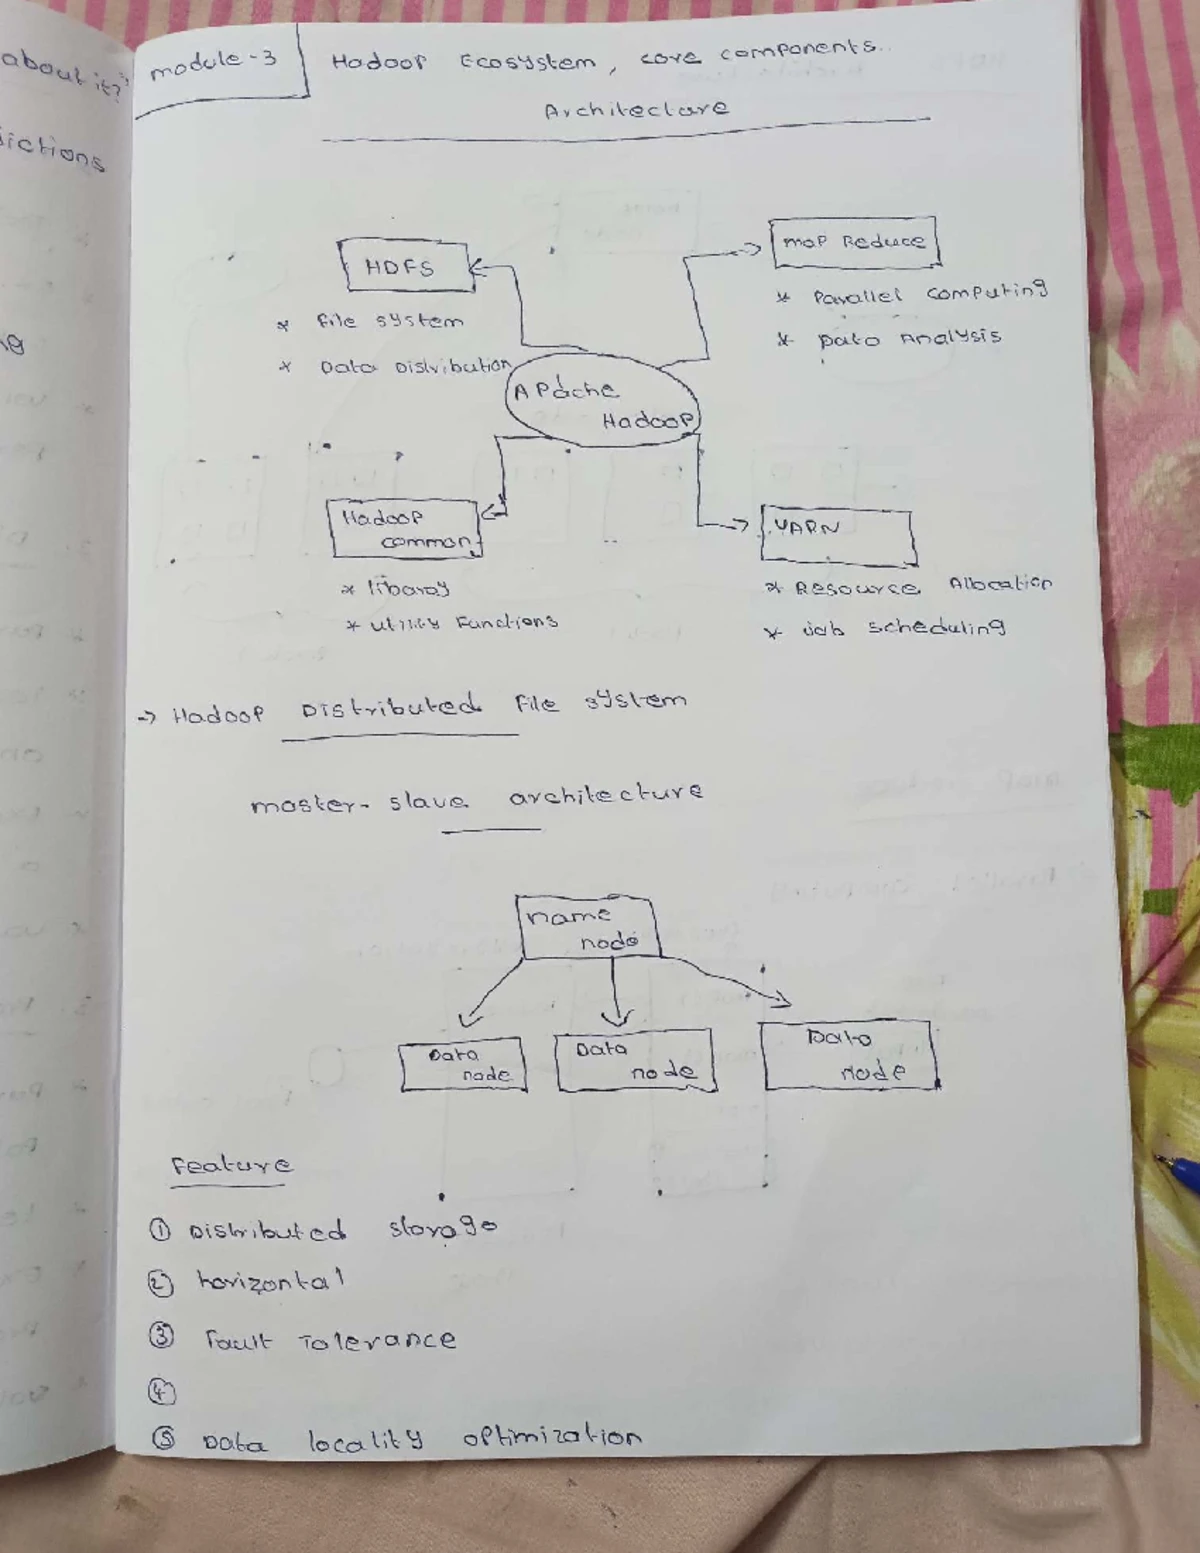 about it?
dictions
ng
module-3
Hadoop Ecosystem, core components.
Architecture
HDFS
* File system
* Data Distribution
map Reduce
* Parallel computing
* Data Analysis
Apache
Hadoop
Hadoop
common
* libaray
* utility Functions
YARN
* Resource Allocation
* Job scheduling
-> Hadoop Distributed File system
master-slave architecture
name
node
Data
node
Data
node
Data
node
Feature
① Distributed storage
② horizontal
③ Fault Tolerance
④
⑤ Data locality optimization